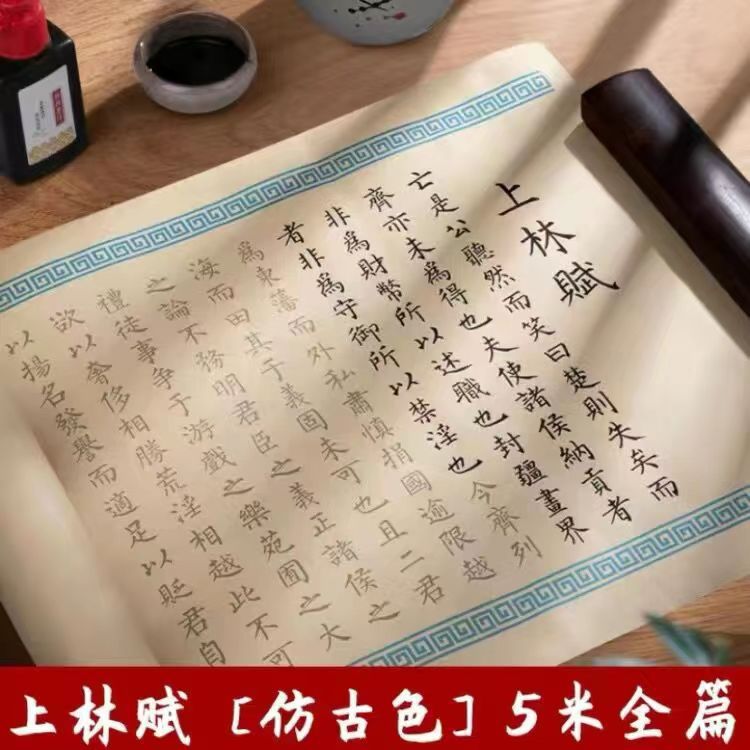 上林賦
亡是公聽然而笑曰楚則失矣而
齊亦未為得也夫使諸侯納貢者
非為財幣所以述職也封疆畫界
者非為守御所以禁淫也今齊列
為東藩而外私肅慎捐國逾限越
海而田其于義固未可也且二君
之論不務明君臣之義正諸侯之
禮徒事爭于游戲之樂苑囿之大
欲以奢侈相勝荒淫相越此不可
以揚名發譽而適足以貶君自
上林赋［仿古色］5米全篇